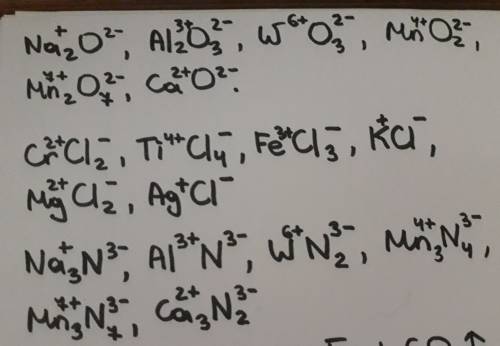 Na₂⁺O²⁻, Al₂³⁺O₃²⁻, W⁶⁺O₃²⁻, Mn⁴⁺O₂²⁻,
Mn₂⁷⁺O₇²⁻, Ca²⁺O²⁻.
Cr²⁺Cl₂⁻, Ti⁴⁺Cl₄⁻, Fe³⁺Cl₃⁻, K⁺Cl⁻,
Mg²⁺Cl₂⁻, Ag⁺Cl⁻
Na₃⁺N³⁻, Al³⁺N³⁻, W⁶⁺N₂³⁻, Mn₃⁴⁺N₄³⁻,
Mn₃⁷⁺N₇³⁻, Ca₃²⁺N₂³⁻